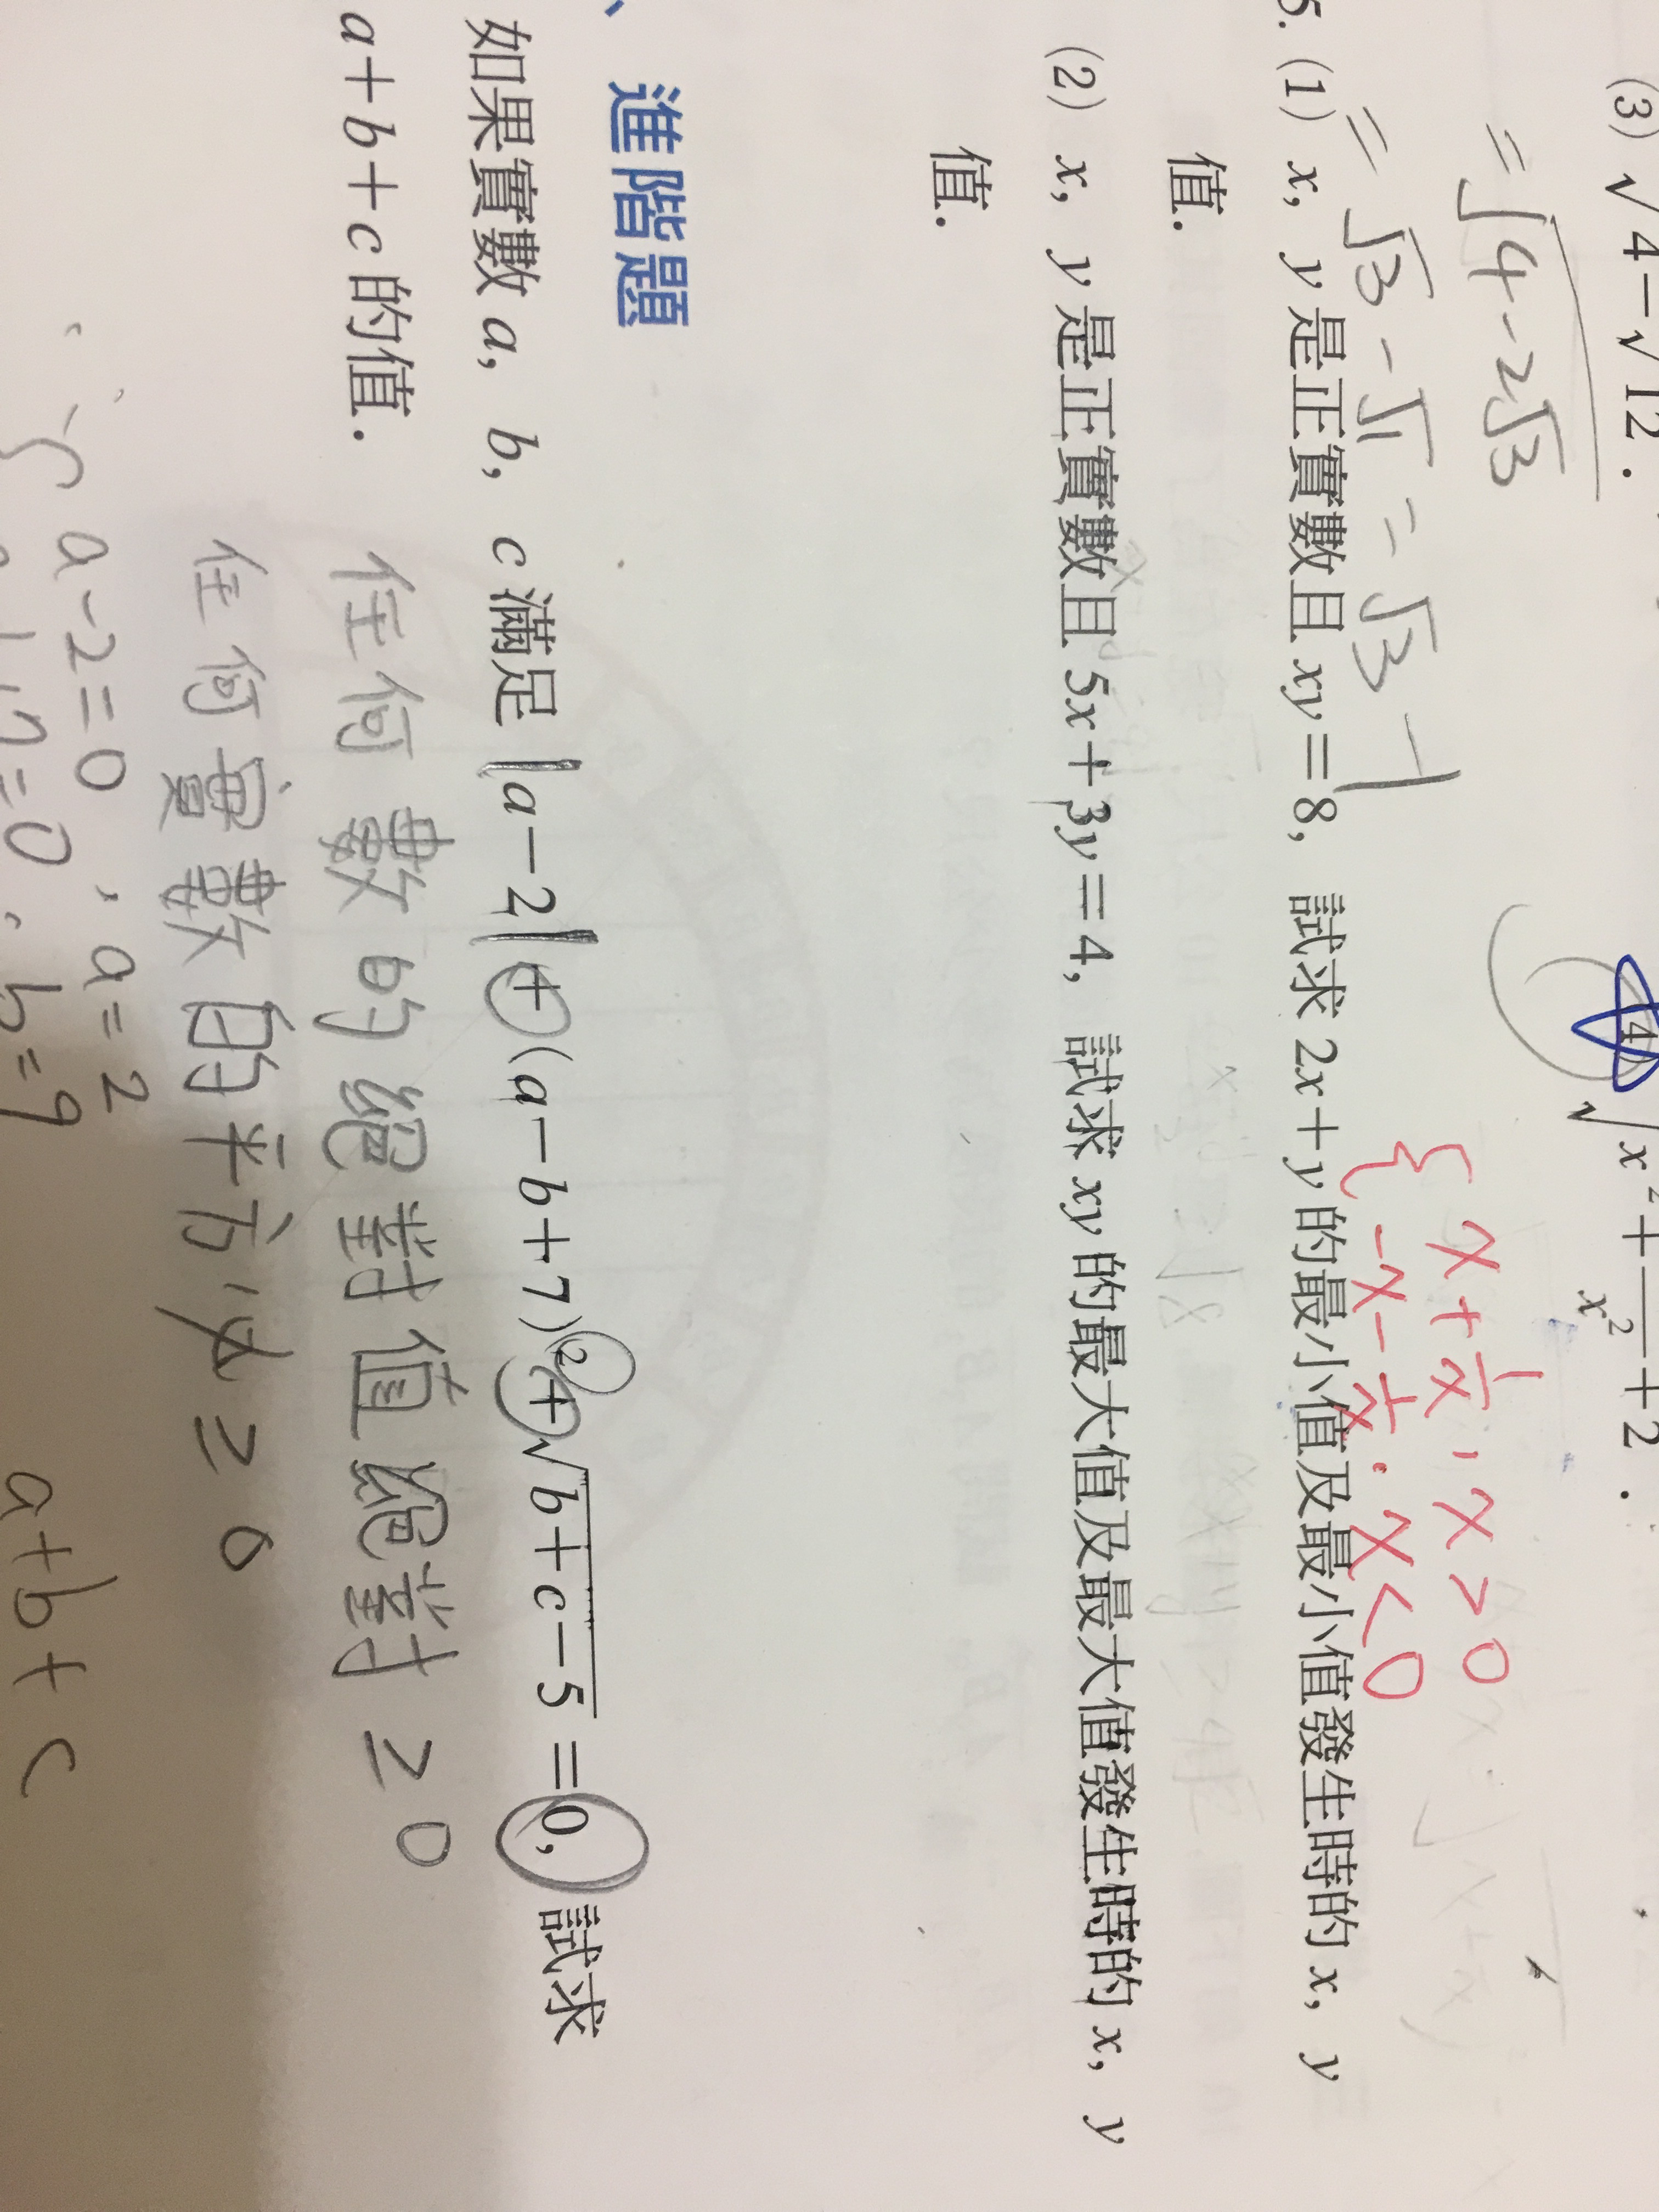 (3) √4-√12.
4) √x²+1/x²+2.
=√4-2√3
{ x+1/x, x>0
=√3-√1=√3-1
-x-1/x. x<0
5. (1) x, y是正實數且xy=8, 試求2x+y的最小值及最小值發生時的x, y
值.
(2) x, y是正實數且5x+3y=4, 試求xy的最大值及最大值發生時的x, y
值.
、進階題
如果實數a, b, c滿足|a-2|+(a-b+7)²+√b+c-5=0, 試求
a+b+c的值.
任何數的絕對值絕對≥0
任何實數的平方必≥0
a-2=0, a=2
=0, b=9
a+b+c